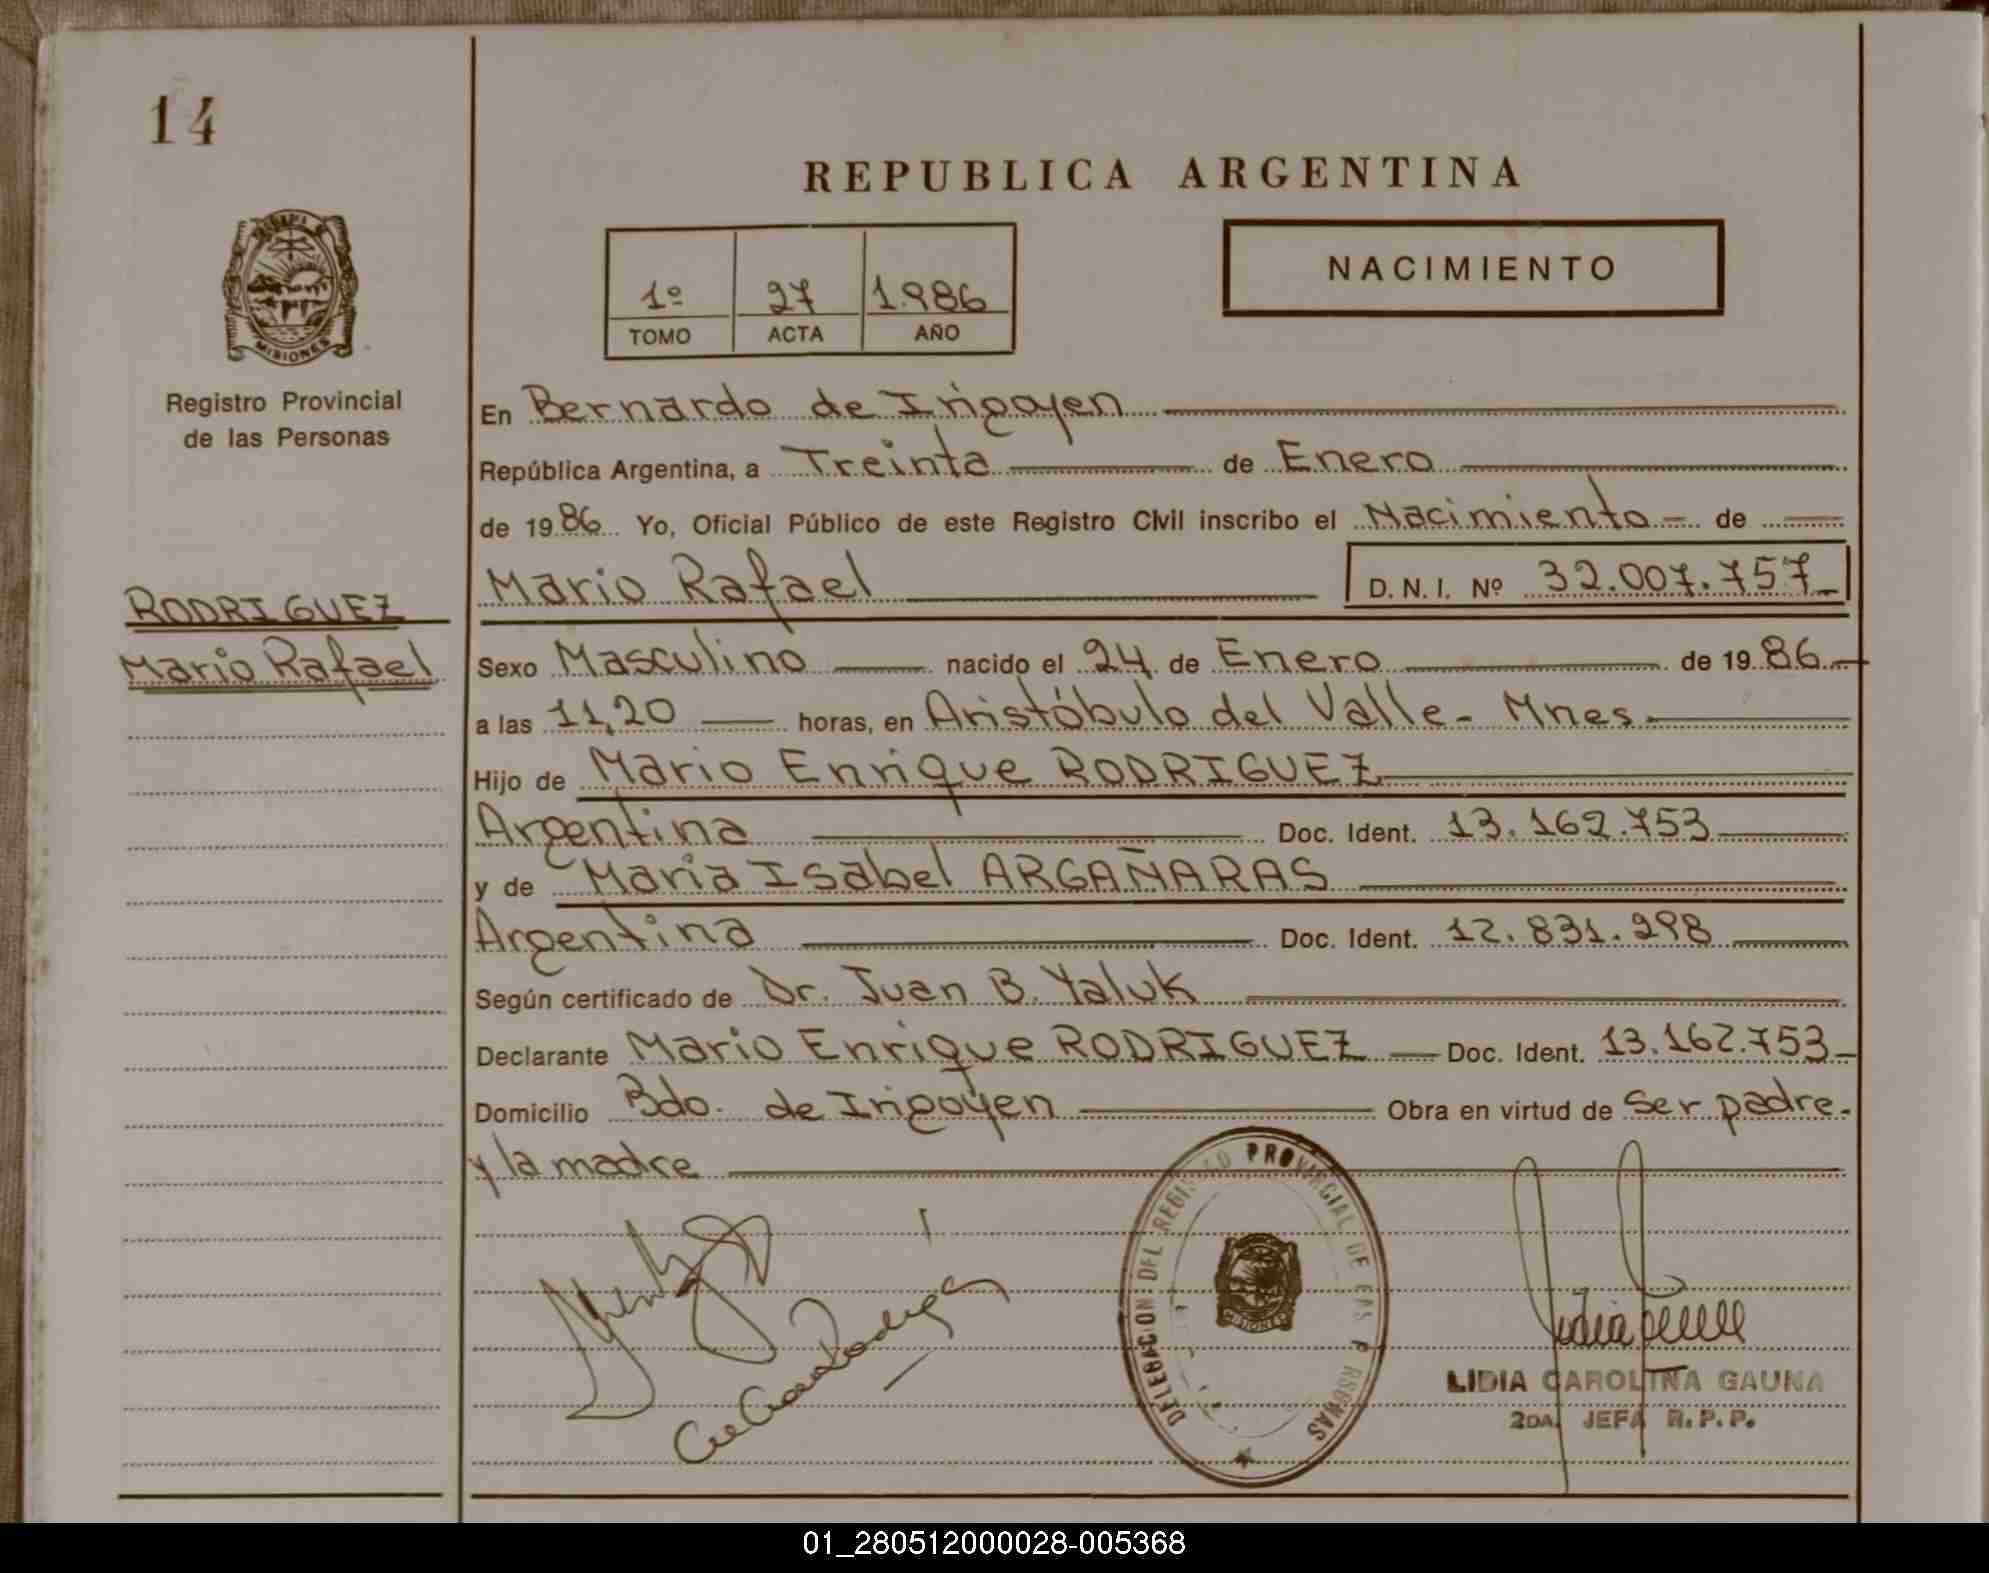 14
REPUBLICA ARGENTINA
NACIMIENTO
1º 27 1.986
TOMO ACTA AÑO
MISIONES
Registro Provincial
de las Personas
En Bernardo de Irigoyen
República Argentina, a Treinta de Enero
de 1986 Yo, Oficial Público de este Registro Civil inscribo el Nacimiento de
Mario Rafael D.N.I. Nº 32.007.757
RODRIGUEZ
Mario Rafael
Sexo Masculino nacido el 24 de Enero de 1986
a las 11,20 horas, en Aristóbulo del Valle - Mnes.
Hijo de Mario Enrique RODRIGUEZ
Argentina Doc. Ident. 13.162.753
y de Maria Isabel ARGAÑARAS
Argentina Doc. Ident. 12.831.298
Según certificado de Dr. Juan B. Yaluk
Declarante Mario Enrique RODRIGUEZ Doc. Ident. 13.162.753
Domicilio Bdo. de Irigoyen Obra en virtud de ser padre
y la madre
DELEGACION DEL REGISTRO PROVINCIAL DE LAS PERSONAS
MISIONES
LIDIA CAROLINA GAUNA
2DA. JEFA R.P.P.
01_280512000028-005368